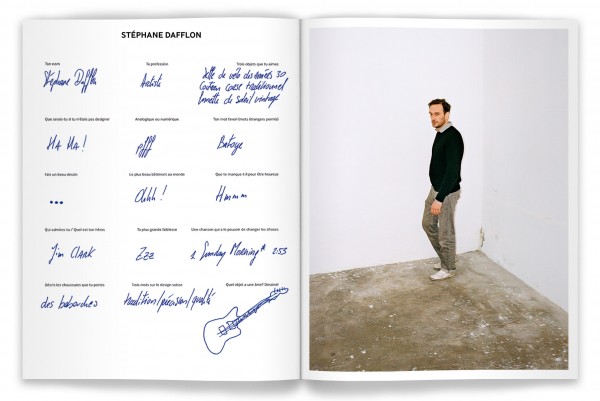 STÉPHANE DAFFLON
Ton nom
Ta profession
Trois objets que tu aimes
Stéphane Dafflon
Artiste
Selle de vélo des années 30
Couteau corse traditionnel
lunette de soleil vintage
Que serais-tu si tu n'étais pas designer
Analogique ou numérique
Ton mot favori (mots étrangers permis)
HA HA!
pfff
Batoye
Fais un beau dessin
Le plus beau bâtiment au monde
Que te manque-t-il pour être heureux
...
Ohhh!
Hmmm
Qui admires-tu? Quel est ton héros
Ta plus grande faiblesse
Une chanson qui a le pouvoir de changer les choses
Jim CLARK
Zzz
1. Sunday Morning 2:53
Décris les chaussures que tu portes
Trois mots sur le design suisse
Quel objet a une âme? Dessine!
des babouches
tradition/précision/qualité